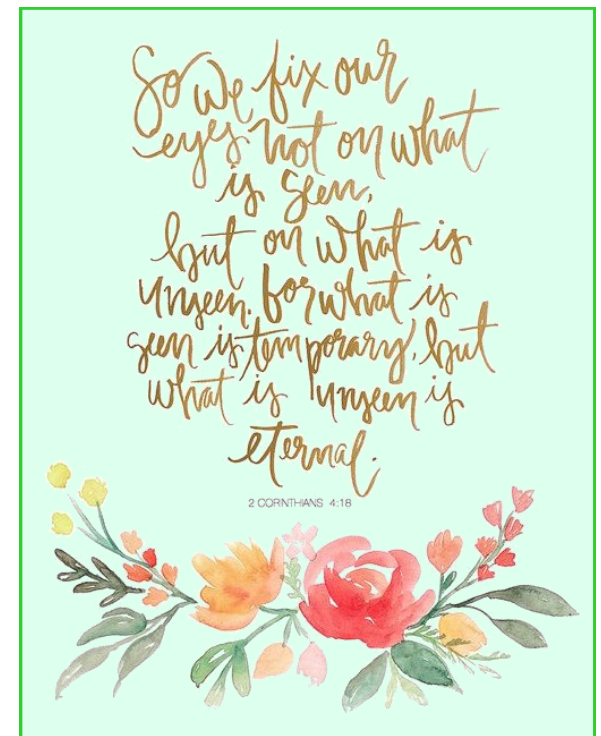 So we fix our
eyes not on what
is seen,
but on what is
unseen. for what is
seen is temporary, but
what is unseen is
eternal.
2 CORINTHIANS 4:18